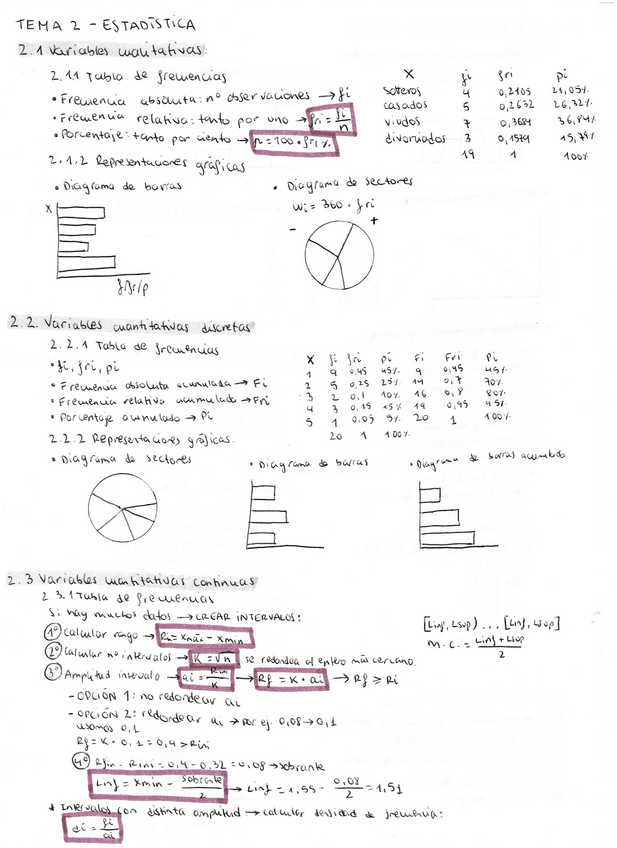 TEMA 2 - ESTADÍSTICA
2.1 Variables cualitativas:
2.1.1 Tabla de frecuencias
• Frecuencia absoluta: nº observaciones → fi
• Frecuencia relativa: tanto por uno → fri = fi/n
• Porcentaje: tanto por ciento → pi = 100 · fri %
X fi fri pi
solteros 4 0,2105 21,05%
casados 5 0,2632 26,32%
viudos 7 0,3684 36,84%
divorciados 3 0,1579 15,79%
19 1 100%
2.1.2 Representaciones gráficas
• Diagrama de barras
X
f/fr/p
• Diagrama de sectores
Wi = 360 · fri
- +
2.2. Variables cuantitativas discretas
2.2.1 Tabla de frecuencias
• fi, fri, pi
• Frecuencia absoluta acumulada → Fi
• Frecuencia relativa acumulado → Fri
• Porcentaje acumulado → Pi
X fi fri pi Fi Fri Pi
1 9 0,45 45% 9 0,45 45%
2 5 0,25 25% 14 0,7 70%
3 2 0,1 10% 16 0,8 80%
4 3 0,15 15% 19 0,95 95%
5 1 0,05 5% 20 1 100%
20 1 100%
2.2.2 Representaciones gráficas.
• Diagrama de sectores
• Diagrama de barras
• Diagrama de barras acumulado
2.3 Variables cuantitativas continuas
2.3.1 Tabla de frecuencias
Si hay muchos datos → CREAR INTERVALOS:
1º Calcular rango → Rini = xmáx - xmin
2º Calcular nº intervalos → K = √n se redondea al entero más cercano.
3º Amplitud intervalo → ai = Rini/K → Rf = K · ai → Rf ≥ Ri
[Linf, Lsup) ... [Linf, Lsup]
m.c. = Linf + Lsup / 2
- OPCIÓN 1: no redondear ai
- OPCIÓN 2: redondear ai → por ej. 0,08 → 0,1
usamos 0,1
Rf = K · 0,1 = 0,4 > Rini
4º Rfin - Rini = 0,4 - 0,32 = 0,08 → sobrante
Linf = xmin - sobrante/2 → Linf = 1,55 - 0,08/2 = 1,51
* Intervalos con distinta amplitud → calcular densidad de frecuencia:
di = fi/ai